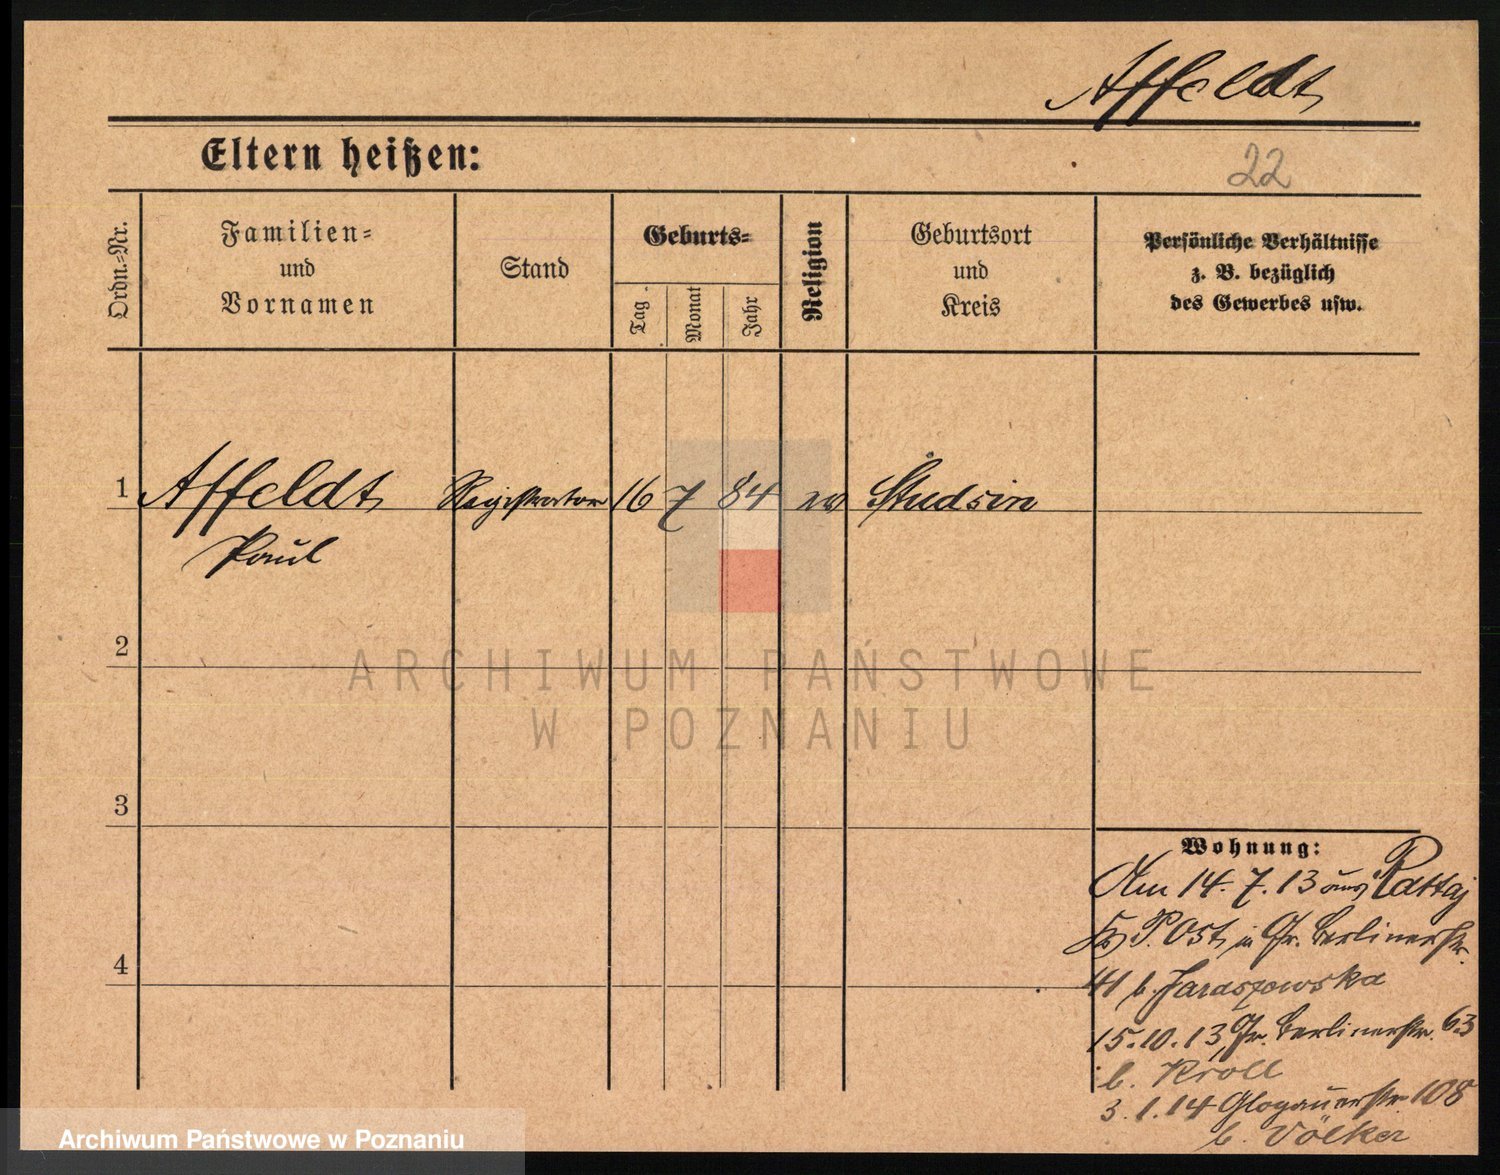 Affeldt
Eltern heißen:
22
Ordn.-Nr.
Familien-
und
Vornamen
Stand
Geburts-
Tag
Monat
Jahr
Religion
Geburtsort
und
Kreis
Persönliche Verhältnisse
z. B. bezüglich
des Gewerbes usw.
1 Affeldt Registrator 16 7 84 ev Studsin
Paul
2
3
4
ARCHIWUM PAŃSTWOWE
W POZNANIU
Wohnung:
Am 14. 7. 13 aus Rattaj
P. Ost, in Gr. Berlinerstr.
41 b. Jaraszewska
15.10.13 Gr. Berlinerstr. 63
b. Kroll
3.1.14 Glogauerstr 108
b. Völker
Archiwum Państwowe w Poznaniu